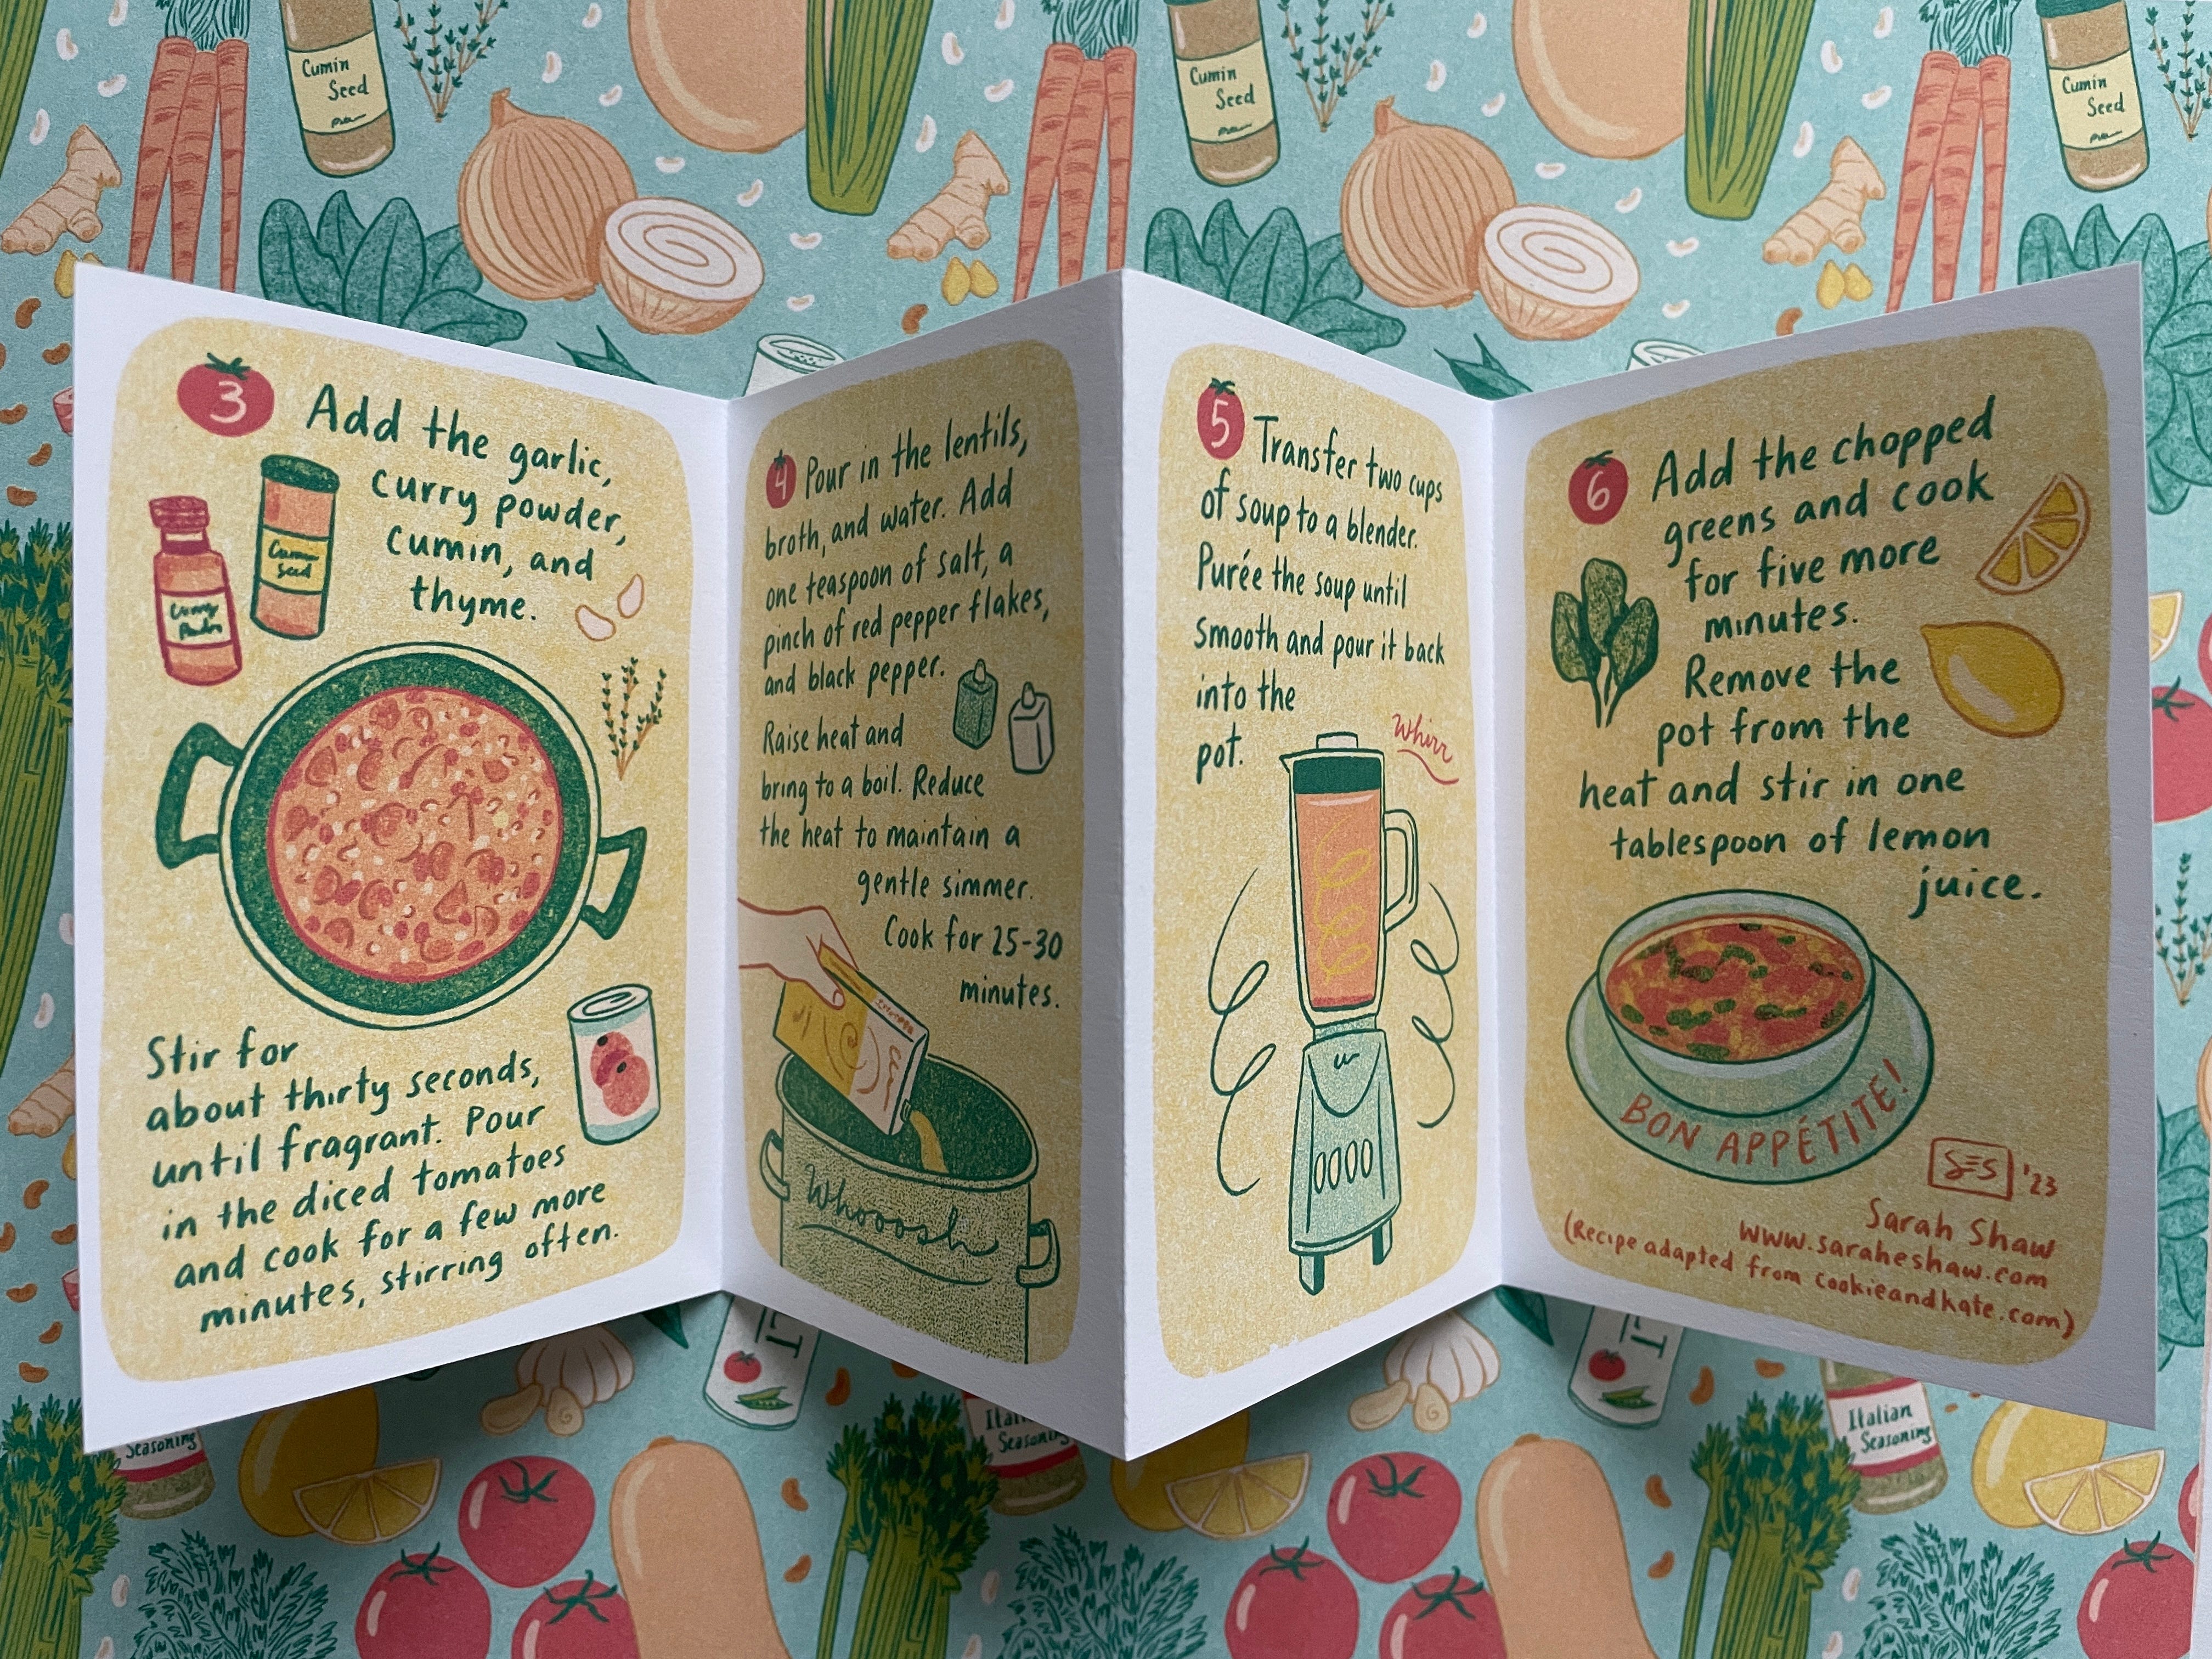 Cumin
Seed
Cumin
Seed
Cumin
Seed
3
Add the garlic,
curry powder,
cumin, and
thyme.
Curry
Powdr
Cumin
Seed
Stir for
about thirty seconds,
until fragrant. Pour
in the diced tomatoes
and cook for a few more
minutes, stirring often.
4
Pour in the lentils,
broth, and water. Add
one teaspoon of salt, a
pinch of red pepper flakes,
and black pepper.
Raise heat and
bring to a boil. Reduce
the heat to maintain a
gentle simmer.
Cook for 25-30
minutes.
Whooosh
5
Transfer two cups
of soup to a blender.
Purée the soup until
smooth and pour it back
into the
pot.
Whirr
6
Add the chopped
greens and cook
for five more
minutes.
Remove the
pot from the
heat and stir in one
tablespoon of lemon
juice.
BON APPÉTITE!
SES '23
Sarah Shaw
www.saraheshaw.com
(Recipe adapted from cookieandkate.com)
Seasoning
Seasoning
Italian
Seasoning